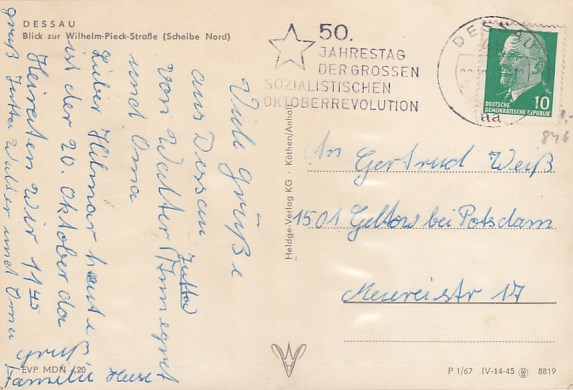 DESSAU
Blick zur Wilhelm-Pieck-Straße (Scheibe Nord)
50.
JAHRESTAG
DER GROSSEN
SOZIALISTISCHEN
OKTOBERREVOLUTION
DESSAU
DEUTSCHE
DEMOKRATISCHE REPUBLIK
10
846
Viele grüße
aus Dessau
von Walter Jutta Annegret
und Oma
Lieber Hilmar heute
ist der 20. Oktober da
Heiraten wir 11 45
gruß Jutta Walter und Oma
gruß
Familie
An Gertrud Weiß
1501 Geltow bei Potsdam
17
Heldge-Verlag KG · Köthen/Anhalt
EVP MDN 0,20
P 1/67 IV-14-45 8819